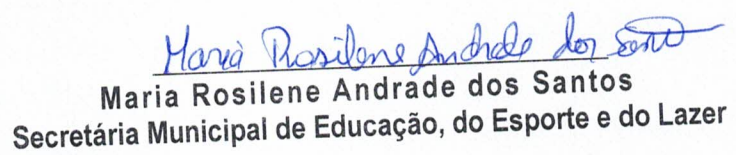 Maria Rosilene Andrade dos Santos
Maria Rosilene Andrade dos Santos
Secretária Municipal de Educação, do Esporte e do Lazer